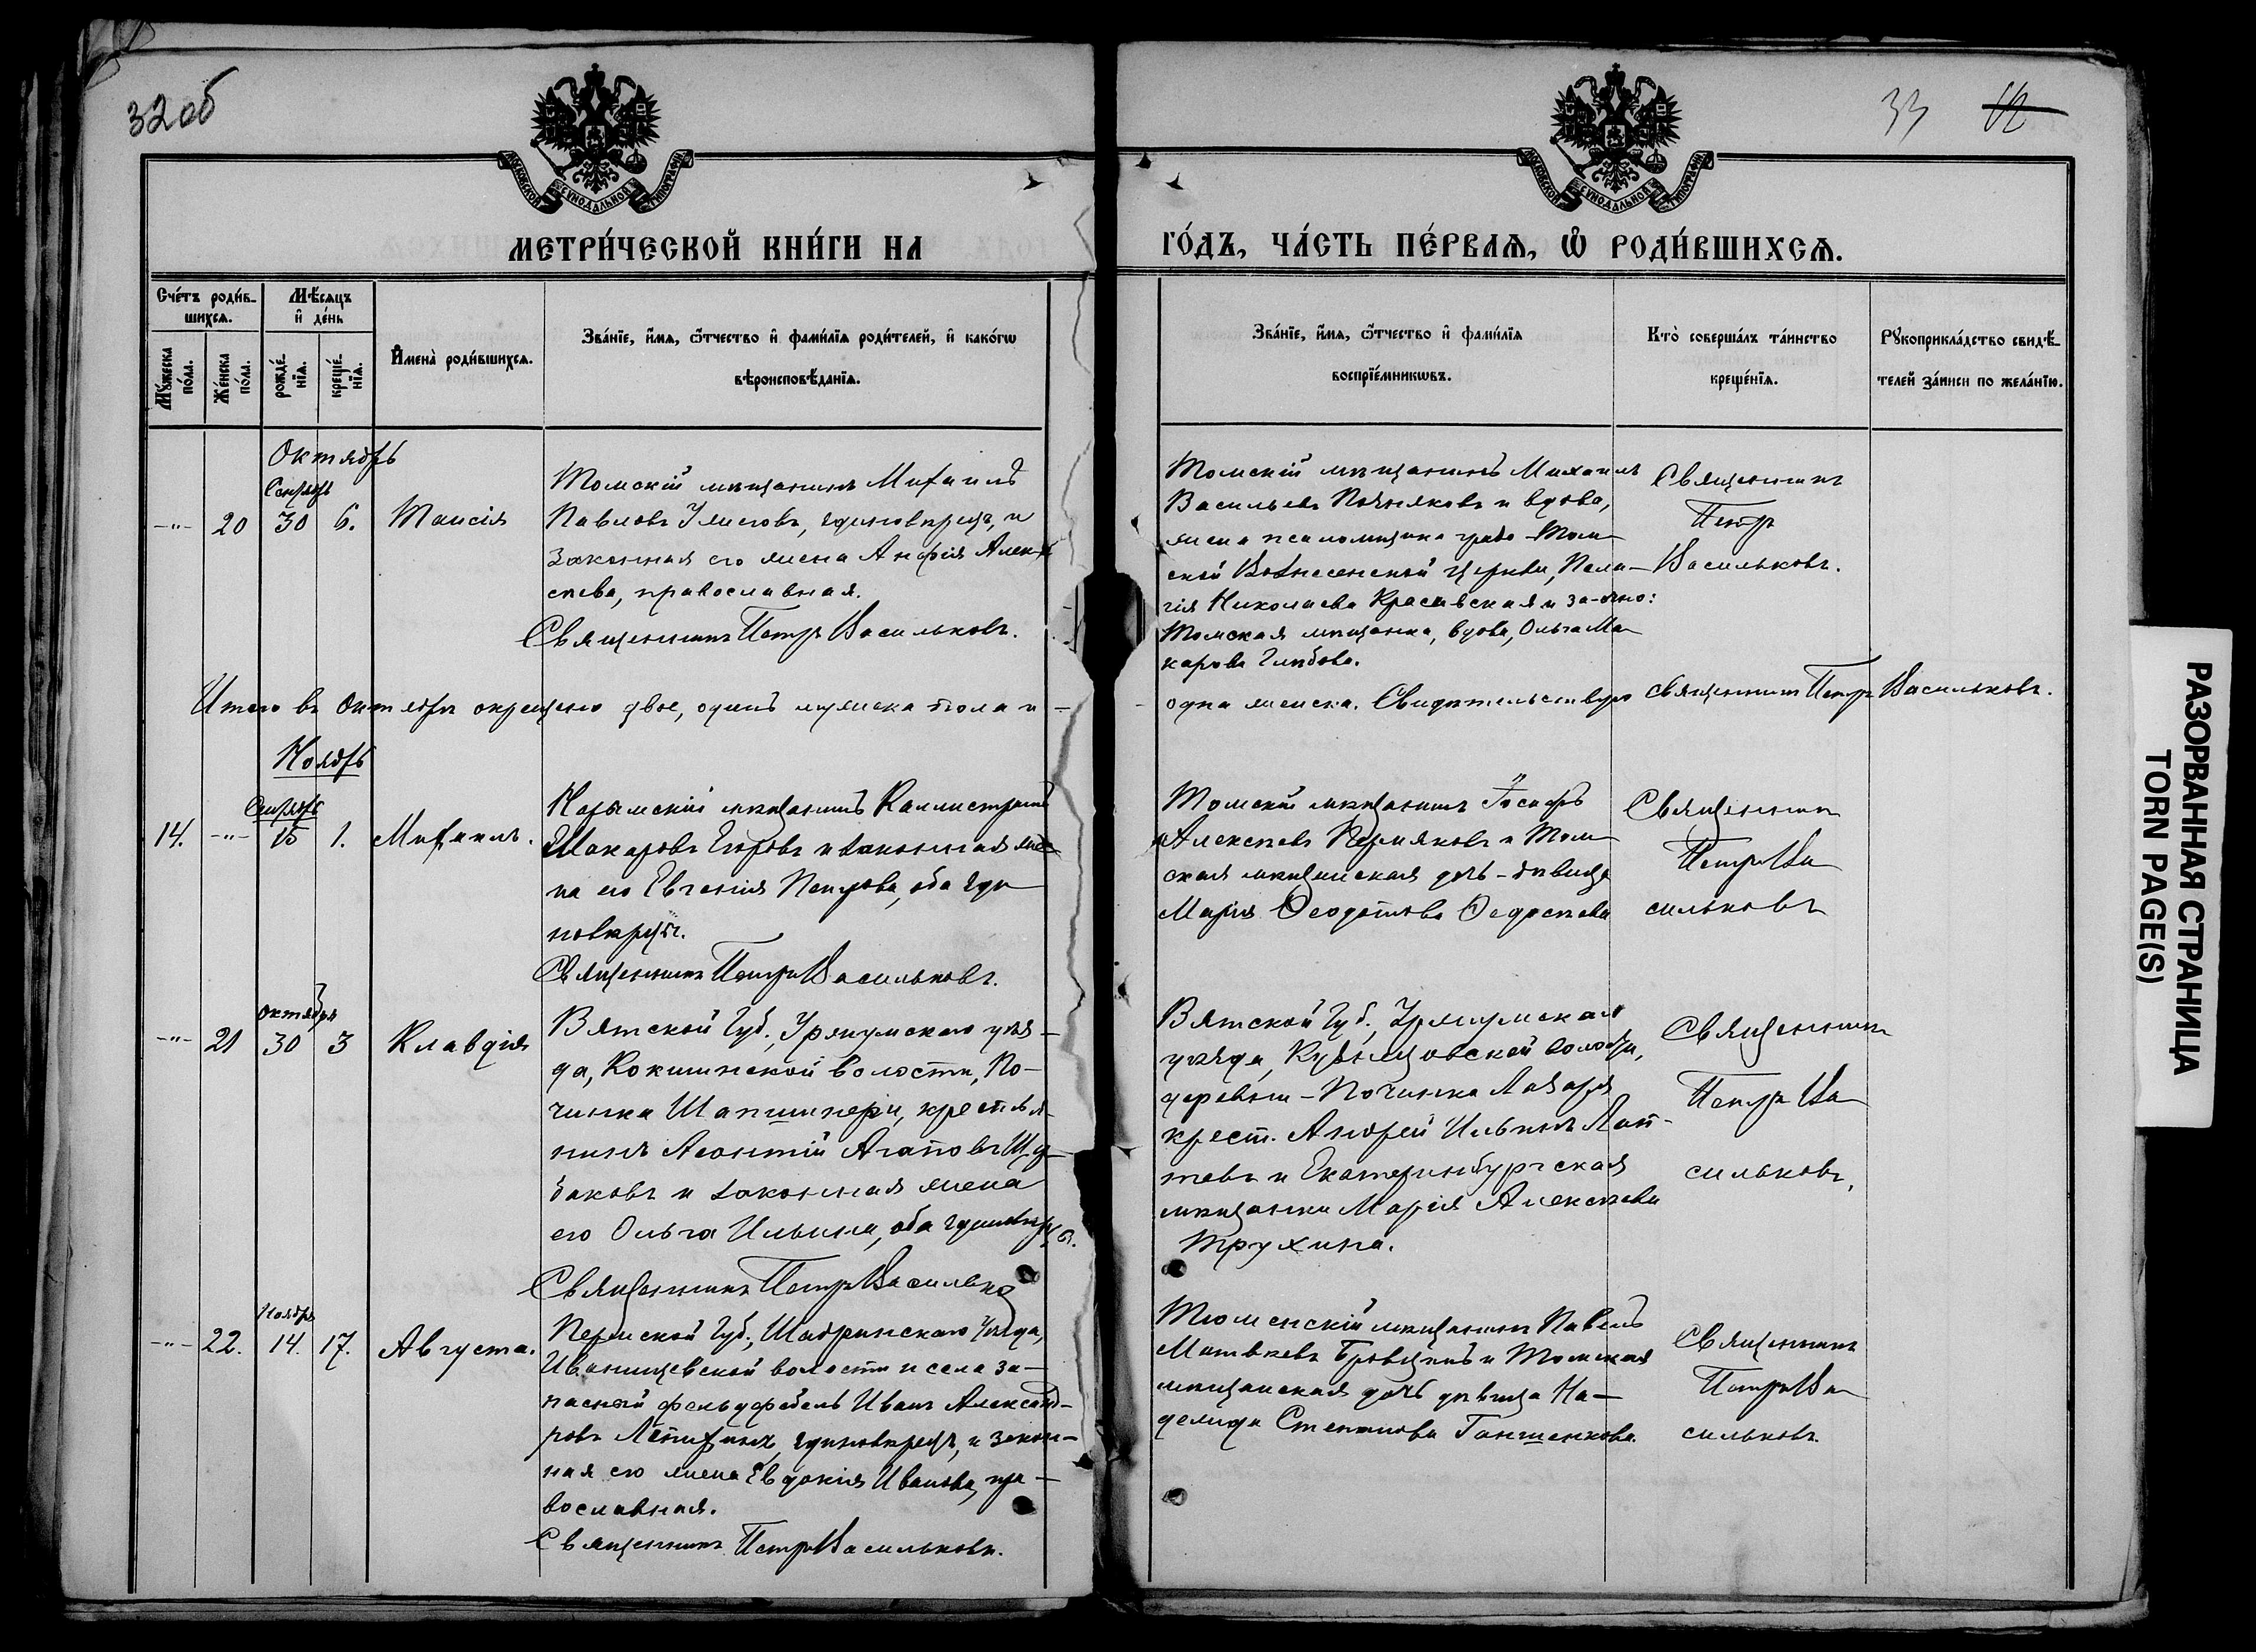 32об
33
12
МОСКОВСКОЙ СѴНОДАЛЬНОЙ ТИПОГРАФІИ
МОСКОВСКОЙ СѴНОДАЛЬНОЙ ТИПОГРАФІИ
МЕТРИ́ЧЕСКОЙ КНИ́ГИ НА
ГО́ДЪ, ЧА́СТЬ ПЕ́РВАѦ, Ѡ҆ РОДИ́ВШИХСѦ.
Сче́тъ роди́в-
шихсѧ.
Мѣ́сѧцъ
и҆ де́нь
Мꙋ́жеска
по́ла.
Же́нска
по́ла.
рожде́-
нїѧ.
креще́-
нїѧ.
И҆мена̀ роди́вшихсѧ.
Зва́нїе, и҆́мѧ, ѻ҆́тчество и҆ фами́лїѧ роди́телей, и҆ како́гѡ
вѣроисповѣ́данїѧ.
Зва́нїе, и҆́мѧ, ѻ҆́тчество и҆ фами́лїѧ
воспрїе́мникѡвъ.
Кто̀ соверша́лъ та́инство
креще́нїѧ.
Рꙋкоприкла́дство свидѣ́-
телей за́писи по жела́нїю.
Октябрь
Сентябрь
-"- 20 30 6. Таисія
Томскій мѣщанинъ Михаилъ
Павловъ единовѣрецъ, и
законная его жена Анфія Алек-
сѣева, православная.
Священникъ Петръ Васильковъ.
Томскій мѣщанинъ Михаилъ
Васильевъ Позняковъ и вдова,
жена псаломщика градо-Том-
ской Вознесенской церкви, Пела-
гія Николаева Красивская и заочно:
Томская мѣщанка, вдова, Ольга Ма-
карова Глѣбова.
Священникъ
Петръ
Васильковъ.
Итого въ Октябрѣ окрещено двое, одинъ мужеска пола и
одна женска. Свидѣтельствую священникъ Петръ Васильковъ.
Ноябрь
Октябрь
14. -"- 15 1. Михаилъ.
Нарымскій мѣщанинъ Каллистратъ
Макаровъ Егоровъ и законная же-
на его Евгенія Петрова, оба еди-
новѣрцы.
Священникъ Петръ Васильковъ.
Томскій мѣщанинъ Іосифъ
Алексѣевъ Пермяковъ и Том-
ская мѣщанская дочь-дѣвица
Марія Ѳеодотова Ѳедосѣева
Священникъ
Петръ Ва-
сильковъ
октября
-"- 21 30 3 Клавдія
Вятской Губ., Уржумскаго уѣз-
да, Кокшинской волости, По-
чинка Шапшинери, крестья-
нинъ Леонтій Агаповъ
баковъ и законная жена
его Ольга Ильина, оба единовѣрцы.
Священникъ Петръ Васильков
Вятской Губ., Уржумскаго
уѣзда, волости,
деревни-Починка Лазаря
крест. Андрей Ильинъ Лап-
тевъ и Екатеринбургская
мѣщанка Марія Алексѣева
Трухина.
Священникъ
Петръ Ва-
сильковъ,
Ноябрь
-"- 22. 14. 17. Августа.
Пермской Губ., Шадринскаго Уѣзда,
Иванищевской волости и села за-
пасный фельдфебель Иванъ Александ-
ровъ Лепихинъ, единовѣрецъ, и закон-
ная его жена Евдокія Иванова, пра-
вославная.
Священникъ Петръ Васильковъ.
Тюменскій мѣщанинъ Павелъ
Матвѣевъ Бровцинъ и Томская
мѣщанская дочь дѣвица На-
делида Степанова Ганшенкова.
Священникъ
Петръ Ва-
сильковъ.
РАЗОРВАННАЯ СТРАНИЦА
TORN PAGE(S)